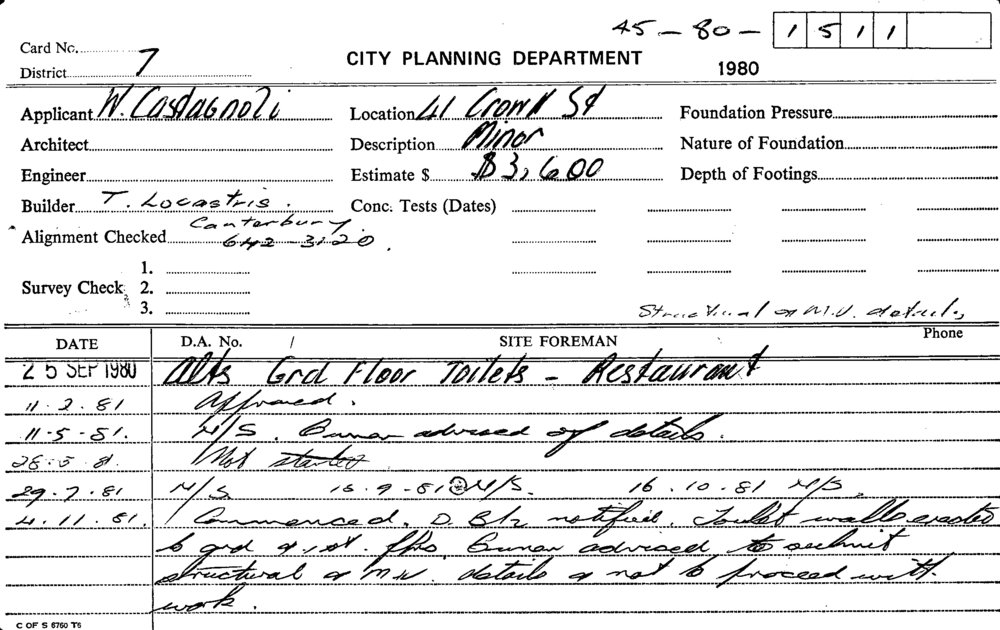 45-80-1511
Card No.
District 7
CITY PLANNING DEPARTMENT
1980
Applicant W. Castagnoli
Location 41 Crown St
Foundation Pressure
Architect
Description Minor
Nature of Foundation
Engineer
Estimate $ $3,600
Depth of Footings
Builder T. Locastris.
Conc. Tests (Dates)
Canterbury
Alignment Checked 642-3120.
1.
Survey Check 2.
3.
Structural & M.V. details
DATE
D.A. No. /
SITE FOREMAN
Phone
25 SEP 1980 Alts Grd Floor Toilets - Restaurant
11.2.81 Approved.
11-5-81. N/S. Owner advised of details.
28.5.81. Not started
29.7.81 N/S. 15.9-81 N/S. 16.10.81 N/S.
4.11.81. Commenced. D. notified. Toilet walls erected
to grd & 1st. flrs. Owner advised to submit
structural & M.V. details & not to proceed with
work.
C OF S 6760 T6